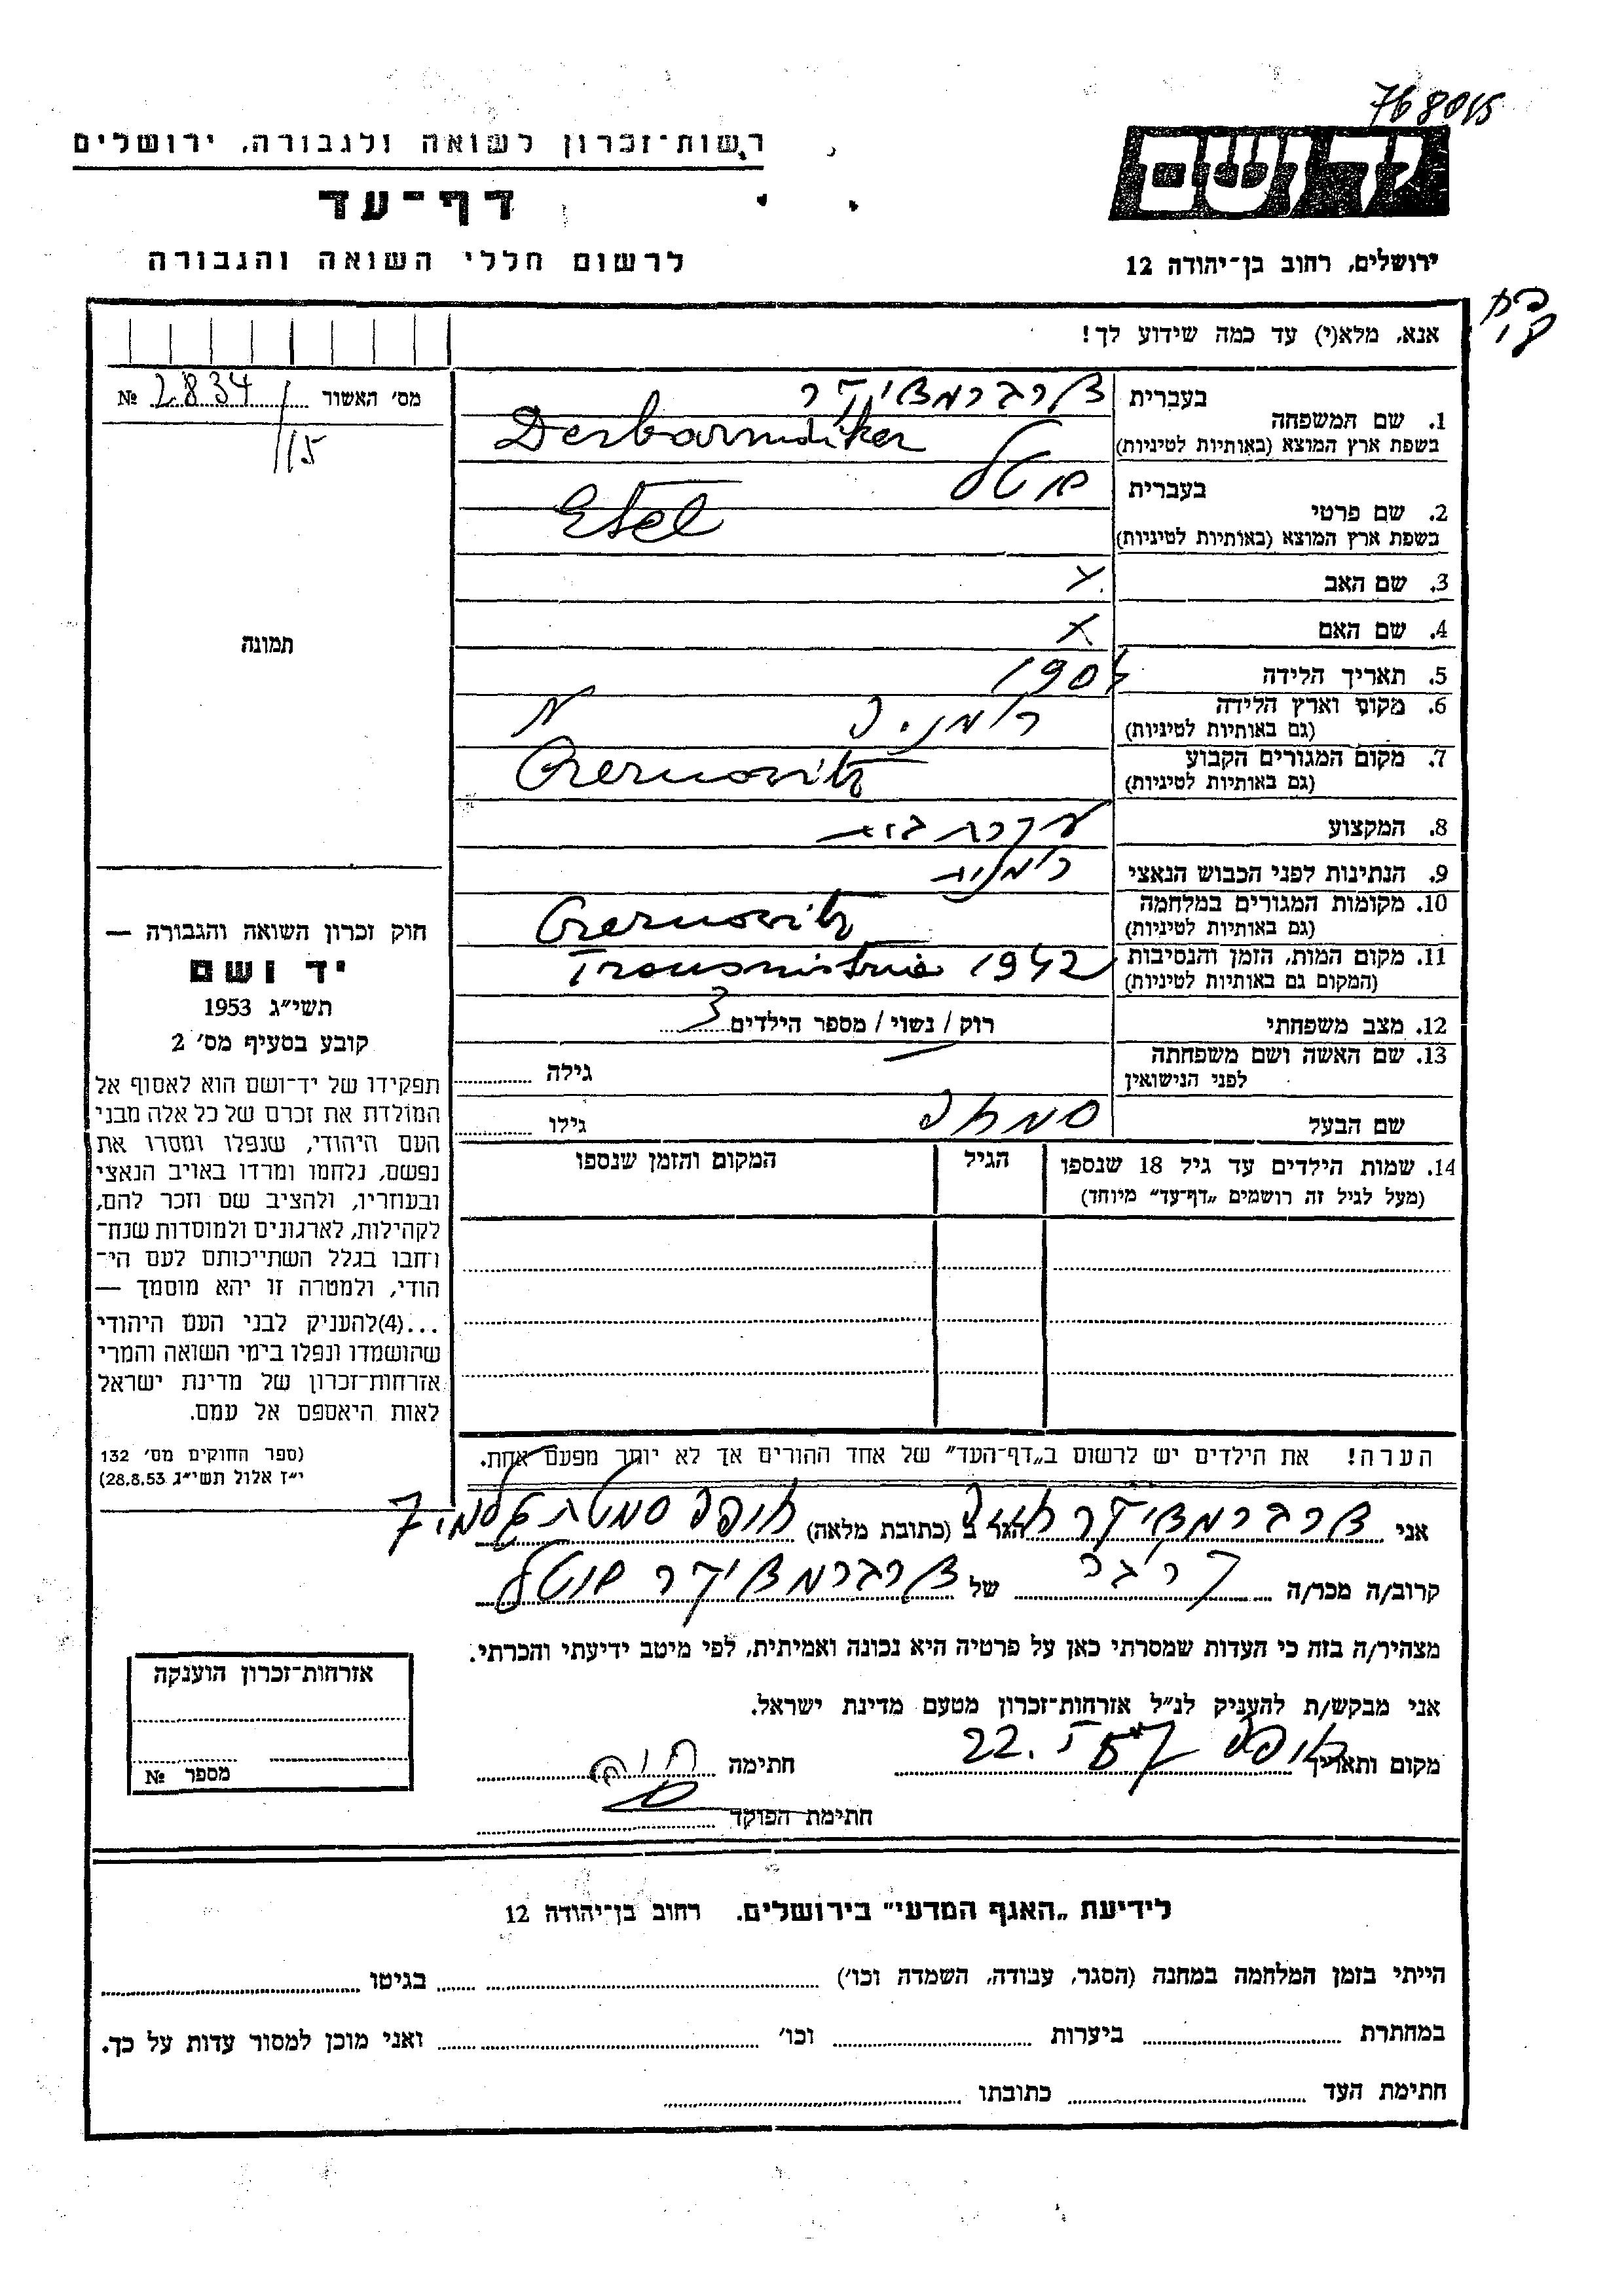 768015
רשות־זכרון לשואה ולגבורה, ירושלים
יד ושם
דף־עד
לרשום חללי השואה והגבורה
ירושלים, רחוב בן־יהודה 12
אנא, מלא(י) עד כמה שידוע לך!
מס׳ האשור № 2834
115
1. שם המשפחה
בעברית
בשפת ארץ המוצא (באותיות לטיניות)
Derbarmdiker
2. שם פרטי
בעברית
בשפת ארץ המוצא (באותיות לטיניות)
Etel
3. שם האב x
4. שם האם x
תמונה
5. תאריך הלידה 1904
6. מקום וארץ הלידה רומניה
(גם באותיות לטיניות)
7. מקום המגורים הקבוע
(גם באותיות לטיניות)
Czernovitz
8. המקצוע עקרת בית
9. הנתינות לפני הכבוש הנאצי רומנית
10. מקומות המגורים במלחמה
(גם באותיות לטיניות)
Czernovitz
11. מקום המות, הזמן והנסיבות
(המקום גם באותיות לטיניות)
Transnistrie 1942
12. מצב משפחתי רוק / נשוי / מספר הילדים 3
13. שם האשה ושם משפחתה
לפני הנישואין
גילה
שם הבעל שמחה גילו
14. שמות הילדים עד גיל 18 שנספו
(מעל לגיל זה רושמים „דף־עד״ מיוחד)
הגיל
המקום והזמן שנספו
חוק זכרון השואה והגבורה —
יד ושם
תשי״ג 1953
קובע בסעיף מס׳ 2
תפקידו של יד־ושם הוא לאסוף אל
המולדת את זכרם של כל אלה מבני
העם היהודי, שנפלו ומסרו את
נפשם, נלחמו ומרדו באויב הנאצי
ובעוזריו, ולהציב שם וזכר להם,
לקהילות, לארגונים ולמוסדות שנח־
רחבו בגלל השתייכותם לעם הי־
הודי, ולמטרה זו יהא מוסמך —
...(4)להעניק לבני העם היהודי
שהושמדו ונפלו בימי השואה והמרי
אזרחות־זכרון של מדינת ישראל
לאות היאספם אל עמם.
(ספר החוקים מס׳ 132
י״ז אלול תשי״ג 28.8.53)
הערה! את הילדים יש לרשום ב„דף־העד״ של אחד ההורים אך לא יותר מפעם אחת.
אני הגר ב (כתובת מלאה) חיפה
קרוב/ה מכר/ה של
מצהיר/ה בזה כי העדות שמסרתי כאן על פרטיה היא נכונה ואמיתית, לפי מיטב ידיעתי והכרתי.
אני מבקש/ת להעניק לנ״ל אזרחות־זכרון מטעם מדינת ישראל.
מקום ותאריך חיפה 22. חתימה
חתימת הפוקד
אזרחות־זכרון הוענקה
מספר №
לידיעת „האגף המדעי״ בירושלים. רחוב בן־יהודה 12
הייתי בזמן המלחמה במחנה (הסגר, עבודה, השמדה וכו׳) בגיטו
במחתרת ביערות וכו׳ ואני מוכן למסור עדות על כך.
חתימת העד כתובתו